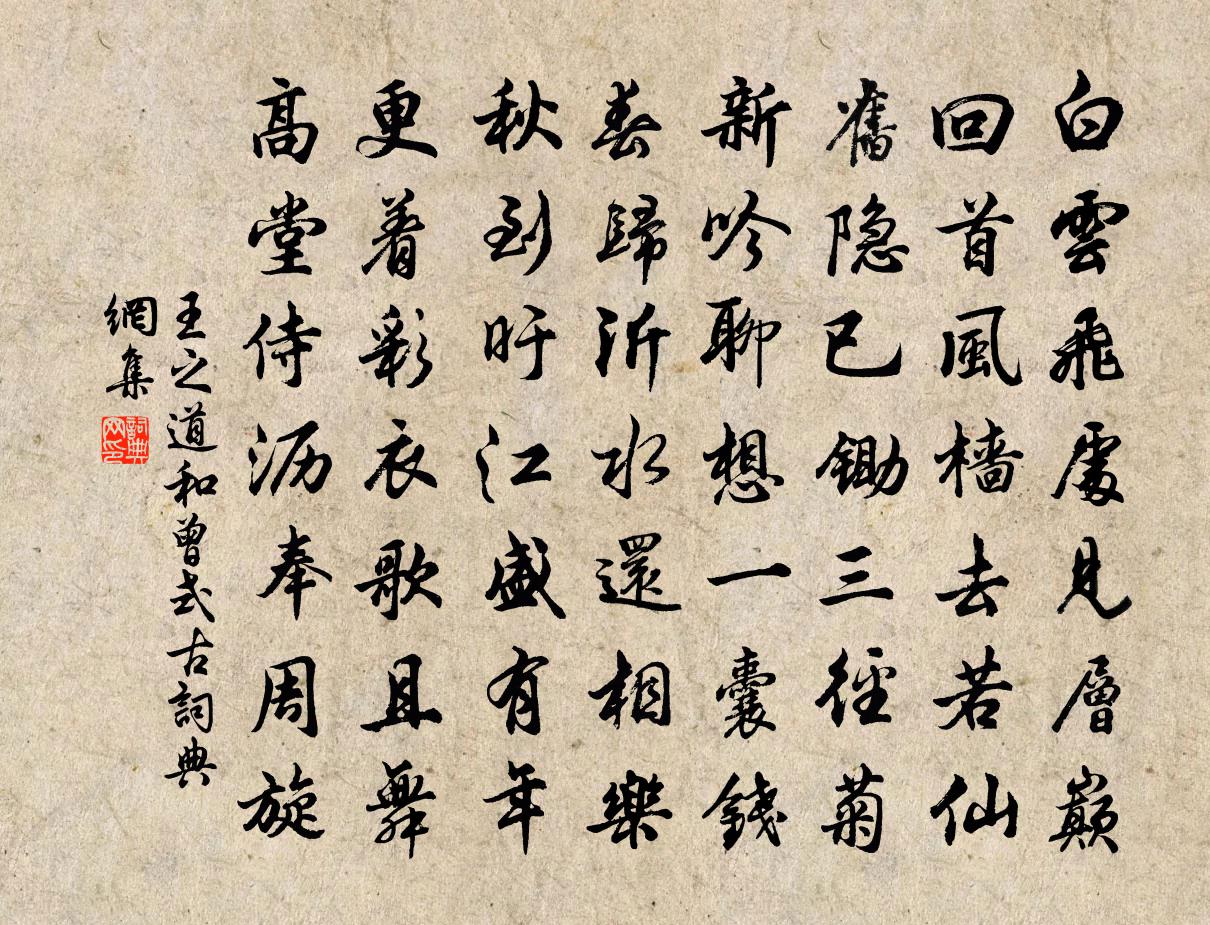 白雲飛處見層巔
回首風檣去若仙
舊隐已鋤三徑菊
新吟聊想一囊錢
春歸沂水還相樂
秋到旴江盛有年
更着彩衣歌且舞
高堂侍沥奉周旋
王之道和曾式古詞典
網集
詞典网印